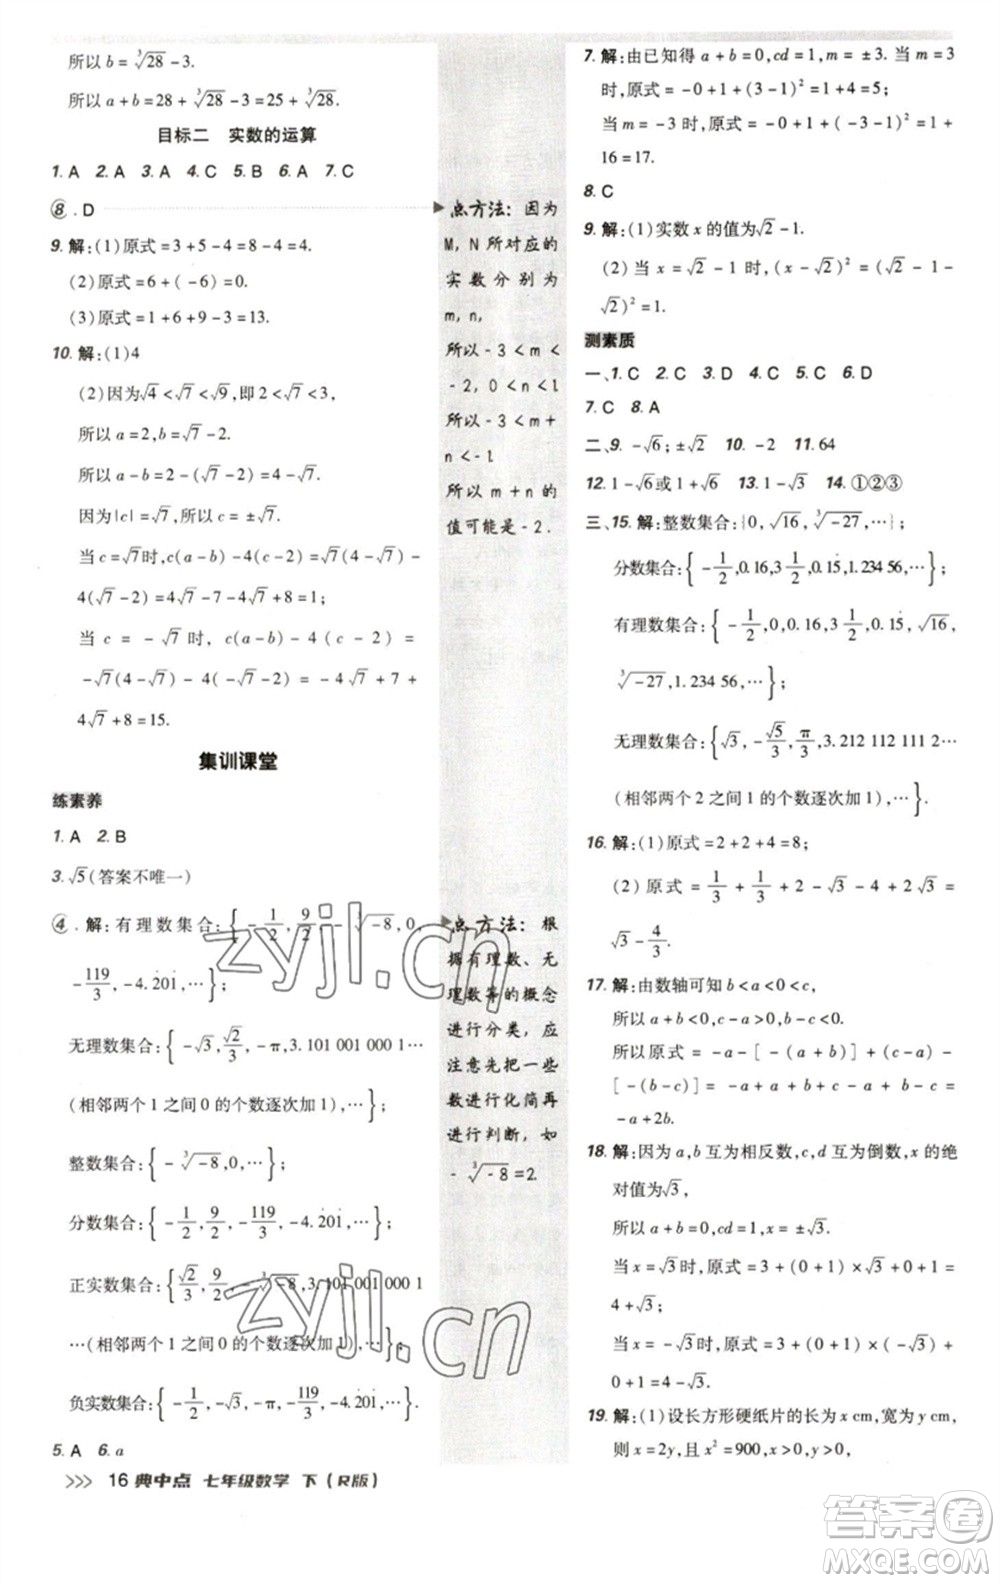 所以 b = ∛28 - 3.
所以 a + b = 28 + ∛28 - 3 = 25 + ∛28.
目标二 实数的运算
1. A 2. A 3. A 4. C 5. B 6. A 7. C
⑧. D
9. 解:(1)原式 = 3 + 5 - 4 = 8 - 4 = 4.
(2)原式 = 6 + ( - 6) = 0.
(3)原式 = 1 + 3 + 9 = 13.
10. 解:(1)4
(2)因为√4 < √7 < √9, 即 2 < √7 < 3,
所以 a = 2, b = √7 - 2.
所以 a - b = 2 - (√7 - 2) = 4 - √7.
因为|c| = √7, 所以 c = ±√7.
当 c = √7时, c(a - b) - 4(c - 2) = √7(4 - √7) -
4(√7 - 2) = 4√7 - 7 - 4√7 + 8 = 1;
当 c = - √7 时, c(a - b) - 4(c - 2) =
-√7(4 - √7) - 4( - √7 - 2) = -4√7 + 7 +
4√7 + 8 = 15.
集训课堂
练素养
1. A 2. B
3. √5(答案不唯一)
④. 解:有理数集合:{ -1/2, 9/2, -∛-8, 0,
-119/3, -4.2̇01̇, …};
无理数集合:{ -√3, √2/3, -π, 3.101 001 000 1…
(相邻两个 1 之间 0 的个数逐次加 1), …};
整数集合:{ -∛-8, 0, …};
分数集合:{ -1/2, 9/2, -119/3, -4.2̇01̇, …};
正实数集合:{ √2/3, 9/2, -∛-8, 3.101 001 000 1
…(相邻两个 1 之间 0 的个数逐次加 1), …};
负实数集合:{ -1/2, -√3, -π, -119/3, -4.2̇01̇, …}.
5. A 6. a
>>> 16 典中点 七年级数学 下(R版)
点方法: 因为
M, N 所对应的
实数分别为
m, n,
所以 - 3 < m <
- 2, 0 < n < 1.
所以 - 3 < m +
n < - 1.
所以 m + n 的
值可能是 - 2.
点方法: 根
据有理数、无
理数等的概念
进行分类, 应
注意先把一些
数进行化简再
进行判断, 如
- ∛-8 = 2.
7. 解:由已知得 a + b = 0, cd = 1, m = ±3. 当
m = 3 时, 原式 = -0 + 1 + (3 - 1)² = 1 + 4 = 5;
当 m = -3 时, 原式 = -0 + 1 + ( -3 -1)² = 1 +
16 = 17.
8. C
9. 解:(1)实数 x 的值为√2 - 1.
(2) 当 x = √2 - 1 时, (x - √2)² = (√2 - 1 -
√2)² = 1.
测素质
一、1. C 2. C 3. D 4. C 5. C 6. D
7. C 8. A
二、9. -√6; ±√2 10. -2 11. 64
12. 1 - √6或 1 + √6 13. 1 - √3 14. ①②③
三、15. 解:整数集合:{0, √16, ∛-27, …};
分数集合:{ -1/2, 0.16, 3 1/2, 0.15̇, 1.234 56, …};
有理数集合:{ -1/2, 0, 0.16, 3 1/2, 0.15̇, √16,
∛-27, 1.234 56, …};
无理数集合:{√3, -√5/3, π/3, 3.212 112 111 2…
(相邻两个 2 之间 1 的个数逐次加 1), …}.
16. 解:(1)原式 = 2 + 2 + 4 = 8;
(2) 原式 = 1/3 + 1/3 + √3 - 2 =
√3 - 4/3.
17. 解:由数轴可知 b < a < 0 < c,
所以 a + b < 0, c - a > 0, b - c < 0.
所以原式 = -a - [ - (a + b)] + (c - a) -
[ - (b - c)] = -a + a + b + c - a + b - c =
-a + 2b.
18. 解:因为 a, b 互为相反数, c, d 互为倒数, x 的绝
对值为√3,
所以 a + b = 0, cd = 1, x = ±√3.
当 x = √3时, 原式 = 3 + (0 + 1) × √3 + 0 + 1 =
4 + √3;
当 x = -√3时, 原式 = 3 + (0 + 1) × ( -√3) +
0 + 1 = 4 - √3.
19. 解:(1)设长方形硬纸片的长为 x cm, 宽为 y cm,
则 x = 4y, 且 x² = 900, 所以 x = 30,
zyjl.cn
zyjl.cn
答案圈
MXQE.COM